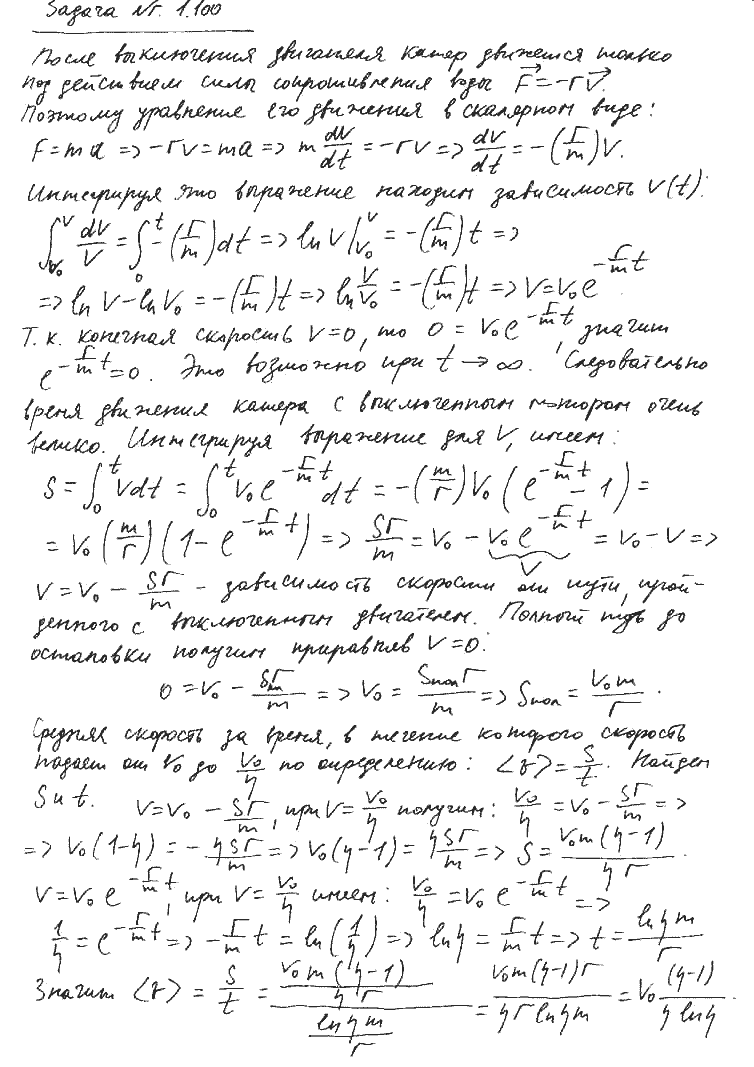 Задача Nr. 1.100
После выключения двигателя катер движется только
под действием силы сопротивления воды F⃗=-rV⃗.
Поэтому уравнение его движения в скалярном виде:
F=ma => -rV=ma => m dV/dt = -rV => dV/dt = -(r/m)V.
Интегрируя это выражение находим зависимость V(t):
∫_{V₀}^{V} dV/V = ∫_{0}^{t} -(r/m)dt => ln V|_{V₀}^{V} = -(r/m)t =>
=> ln V - ln V₀ = -(r/m)t => ln V/V₀ = -(r/m)t => V=V₀e^{-r/m t}
Т.к. конечная скорость V=0, то 0 = V₀e^{-r/m t}, значит
e^{-r/m t}=0. Это возможно при t → ∞. Следовательно
время движения катера с выключенным мотором очень
велико. Интегрируя выражение для V, имеем:
S = ∫_{0}^{t} Vdt = ∫_{0}^{t} V₀e^{-r/m t} dt = -(m/r)V₀(e^{-r/m t} - 1) =
= V₀(m/r)(1 - e^{-r/m t}) => Sr/m = V₀ - V₀e^{-r/m t} = V₀ - V =>
V
V = V₀ - Sr/m - зависимость скорости от пути, прой-
денного с выключенным двигателем. Полный путь до
остановки получим приравняв V=0:
0 = V₀ - Sr/m => V₀ = Sпол r/m => Sпол = V₀m/r.
Средняя скорость за время, в течение которого скорость
падает от V₀ до V₀/η по определению: <V> = S/t. Найдем
S и t. V=V₀ - Sr/m, при V = V₀/η получим: V₀/η = V₀ - Sr/m =>
=> V₀(1-η) = -ηSr/m => V₀(η-1) = ηSr/m => S = V₀m(η-1)/ηr.
V = V₀e^{-r/m t}, при V = V₀/η имеем: V₀/η = V₀e^{-r/m t} =>
1/η = e^{-r/m t} => -r/m t = ln(1/η) => ln η = r/m t => t = ln η m/r
Значит <V> = S/t = (V₀m(η-1)/ηr)/(ln η m/r) = V₀m(η-1)r/ηr ln η m = V₀ (η-1)/η ln η